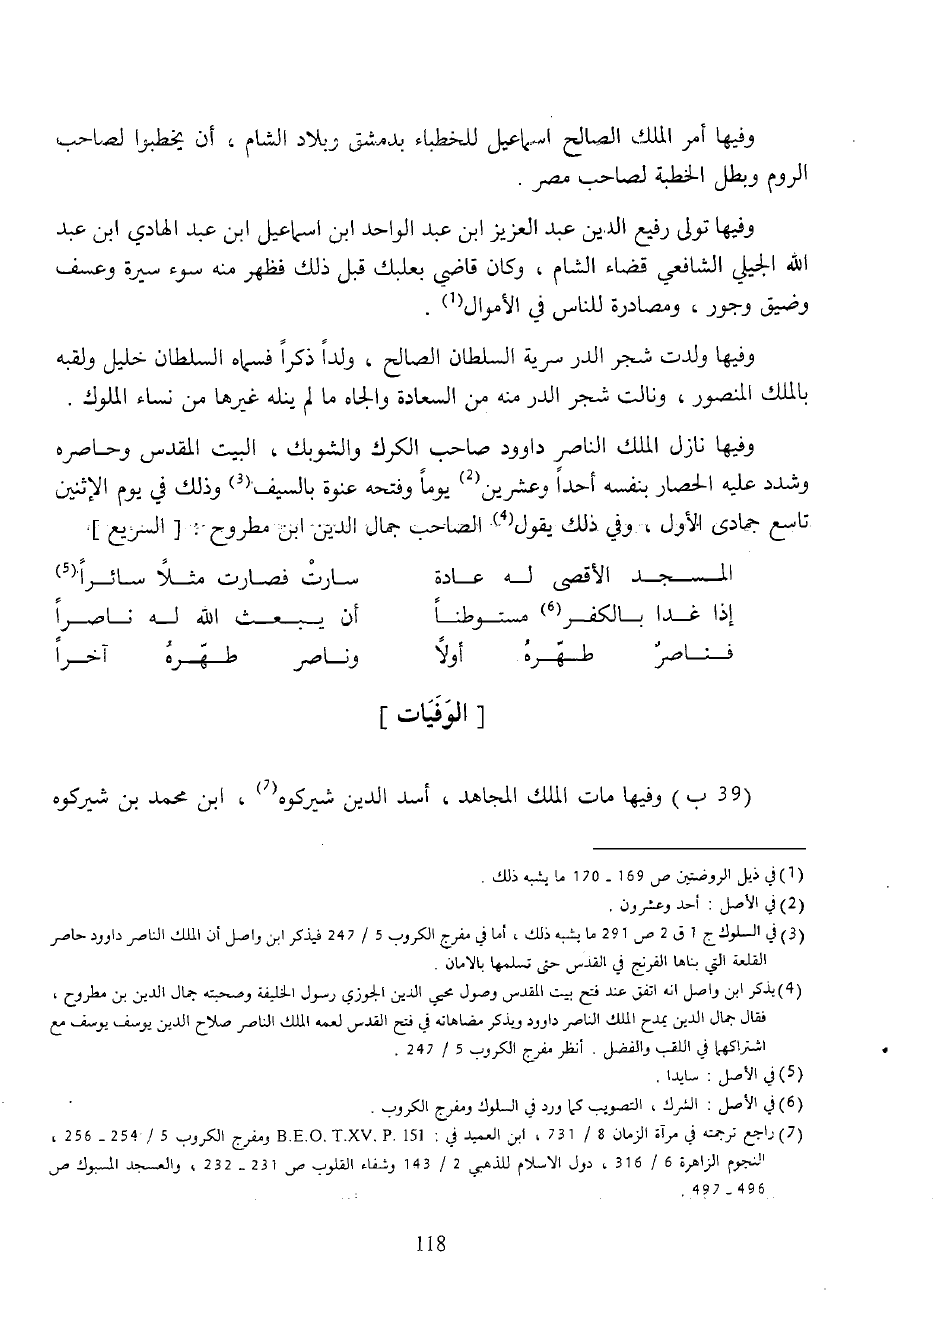 وفيها أمر الملك الصالح اسماعيل للخطباء بدمشق وبلاد الشام ، أن يخطبوا لصاحب
الروم وبطل الخطبة لصاحب مصر .
وفيها تولى رفيع الدين عبد العزيز ابن عبد الواحد ابن اسماعيل ابن عبد الهادي ابن عبد
الله الجيلي الشافعي قضاء الشام ، وكان قاضي بعلبك قبل ذلك فظهر منه سوء سيرة وعسف
وضيق وجور ، ومصادرة للناس في الأموال(1) .
وفيها ولدت شجر الدر سرية السلطان الصالح ، ولداً ذكراً فسماه السلطان خليل ولقبه
بالملك المنصور ، ونالت شجر الدر منه من السعادة والجاه ما لم ينله غيرها من نساء الملوك .
وفيها نازل الملك الناصر داوود صاحب الكرك والشوبك ، البيت المقدس وحاصره
وشدد عليه الحصار بنفسه أحداً وعشرين(2) يوماً وفتحه عنوة بالسيف(3) وذلك في يوم الإثنين
تاسع جمادى الأول ، وفي ذلك يقول(4) الصاحب جمال الدين ابن مطروح : [ السريع ]
المسجد الأقصى له عادة سارتْ فصارت مثلاً سائراً(5)
إذا غدا بالكفر(6) مستوطناً أن يبعث الله له ناصراً
فناصرٌ طهّرهُ أولاً وناصر طهّرهُ آخراً
[ الوَفَيَات ]
(39 ب) وفيها مات الملك المجاهد ، أسد الدين شيركوه(7) ، ابن محمد بن شيركوه
(1) في ذيل الروضتين ص 169 ـ 170 ما يشبه ذلك .
(2) في الأصل : أحد وعشرون .
(3) في السلوك ج 1 ق 2 ص 291 ما يشبه ذلك ، أما في مفرج الكروب 5 / 247 فيذكر ابن واصل أن الملك الناصر داوود حاصر
القلعة التي بناها الفرنج في القدس حتى تسلمها بالأمان .
(4) يذكر ابن واصل انه اتفق عند فتح بيت المقدس وصول محيي الدين الجوزي رسول الخليفة وصحبته جمال الدين بن مطروح ،
فقال جمال الدين يمدح الملك الناصر داوود ويذكر مضاهاته في فتح القدس لعمه الملك الناصر صلاح الدين يوسف يوسف مع
اشتراكهما في اللقب والفضل . أنظر مفرج الكروب 5 / 247 .
(5) في الأصل : سايدا .
(6) في الأصل : الشرك ، التصويب كما ورد في السلوك ومفرج الكروب .
(7) راجع ترجمته في مرآة الزمان 8 / 731 ، ابن العميد في : B.E.O. T.XV. P. 151 ومفرج الكروب 5 / 254 ـ 256 ،
النجوم الزاهرة 6 / 316 ، دول الاسلام للذهبي 2 / 143 وشفاء القلوب ص 231 ـ 232 ، والعسجد المسبوك ص
496 ـ 497 .
118